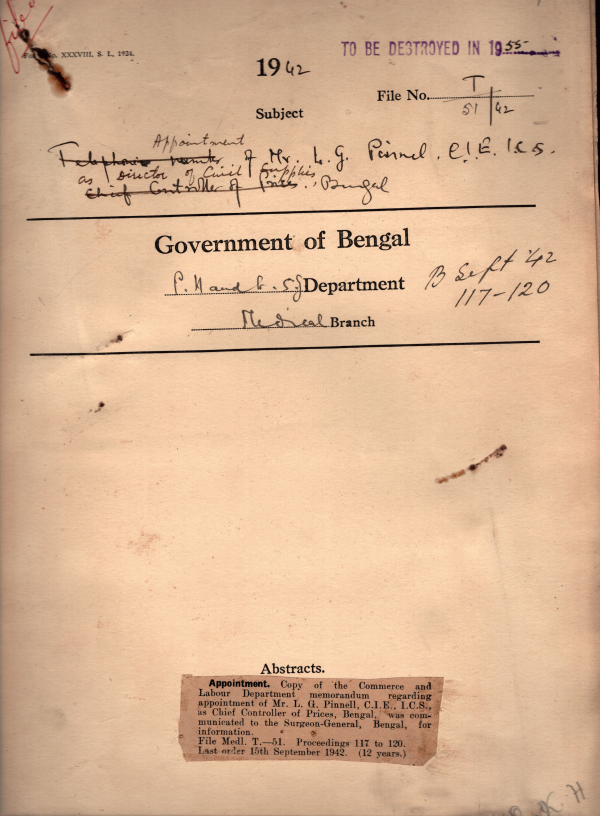 No. XXXVIII, S. I., 1924.
TO BE DESTROYED IN 1955
1942
File No. T
51/42
Subject
Appointment
Telephone number of Mr. L. G. Pinnel, C.I.E. I.C.S.
as Director of Civil Supplies
Chief Controller of Prices, Bengal
Government of Bengal
Department
B Sept '42
117-120
Medical Branch
Abstracts.
Appointment. Copy of the Commerce and
Labour Department memorandum regarding
appointment of Mr. L. G. Pinnell, C.I.E., I.C.S.,
as Chief Controller of Prices, Bengal, was com-
municated to the Surgeon-General, Bengal, for
information.
File Medl. T.—51. Proceedings 117 to 120.
Last order 15th September 1942. (12 years.)